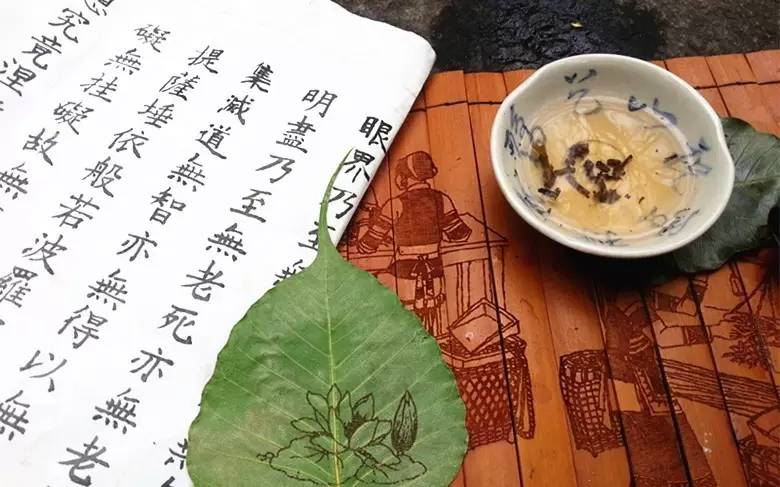 眼界乃至無
明盡乃至無老死亦無老
集滅道無智亦無得以無
提薩埵依般若波羅
礙無挂礙故無
想究竟涅